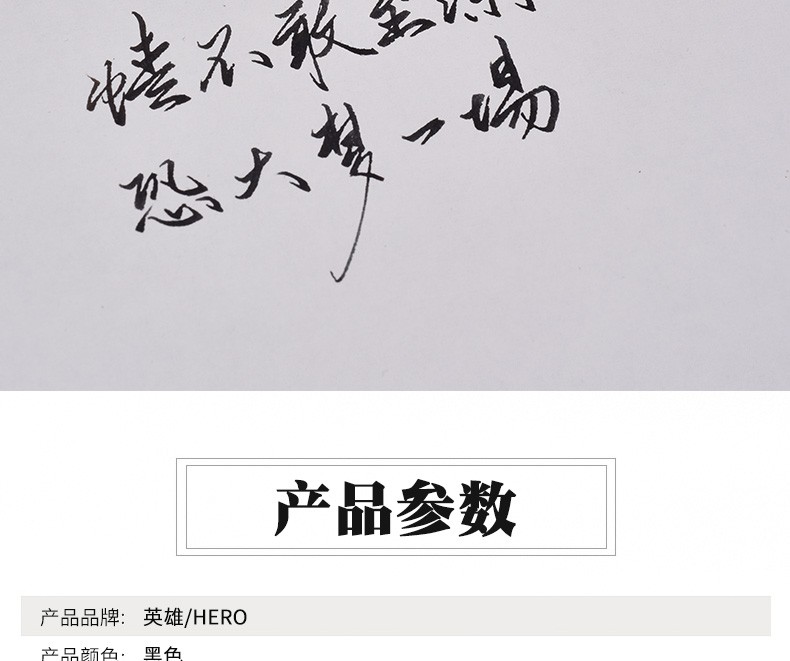 情不敢至深
恐大梦一场
产品参数
产品品牌: 英雄/HERO
产品颜色: 黑色